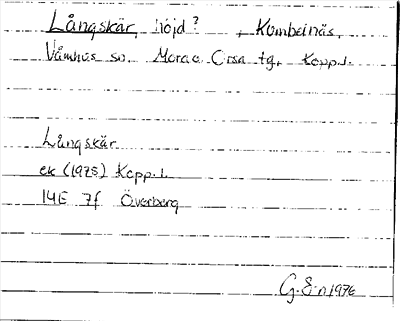 Långskär, höjd? , Kumbelnäs,
Våmhus sn. Mora o. Orsa tg, Kopp.l.
Långskär
ek (1975) Kopp.l.
14E 7f Överberg
G. E-n 1976